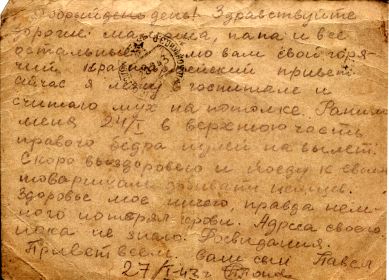 Добрый день! Здравствуйте
дорогие мамаша, папа и все
остальные. вам свой горя-
чий красноармейский привет.
сейчас я лежу госпитале и
считаю мух на потолке. Ранило
меня 24/I в верхнюю часть
правого бедра пулей на вылет.
Скоро выздоровею и поеду к своим
товарищам добивать немцев.
Здоровье мое ничего правда нем-
ного потерял крови. Адреса своего
пока не знаю. Досвидания.
Привет всем. Ваш сын Павел
27/I 43 г